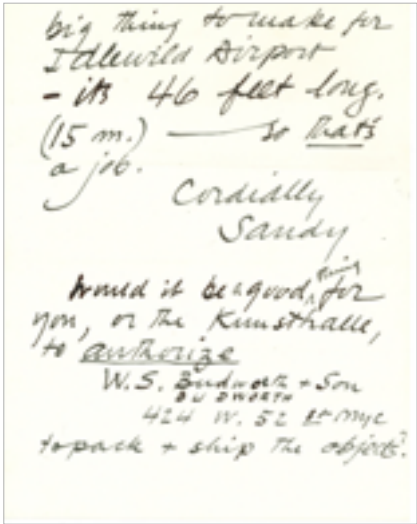 big thing to make for
Idlewild Airport
- its 46 feet long.
(15 m.) — so that's
a job.
Cordially
Sandy
Would it be a good thing for
you, or the Kunsthalle,
to authorize
W. S. Budworth + Son
BUDWORTH
424 W. 52 St NYC
to pack + ship the objects?